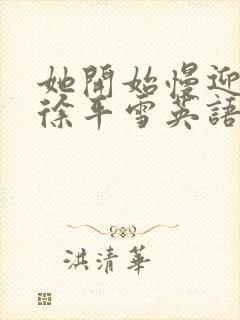 她開始慢迎
徐年雪英語
洪清華